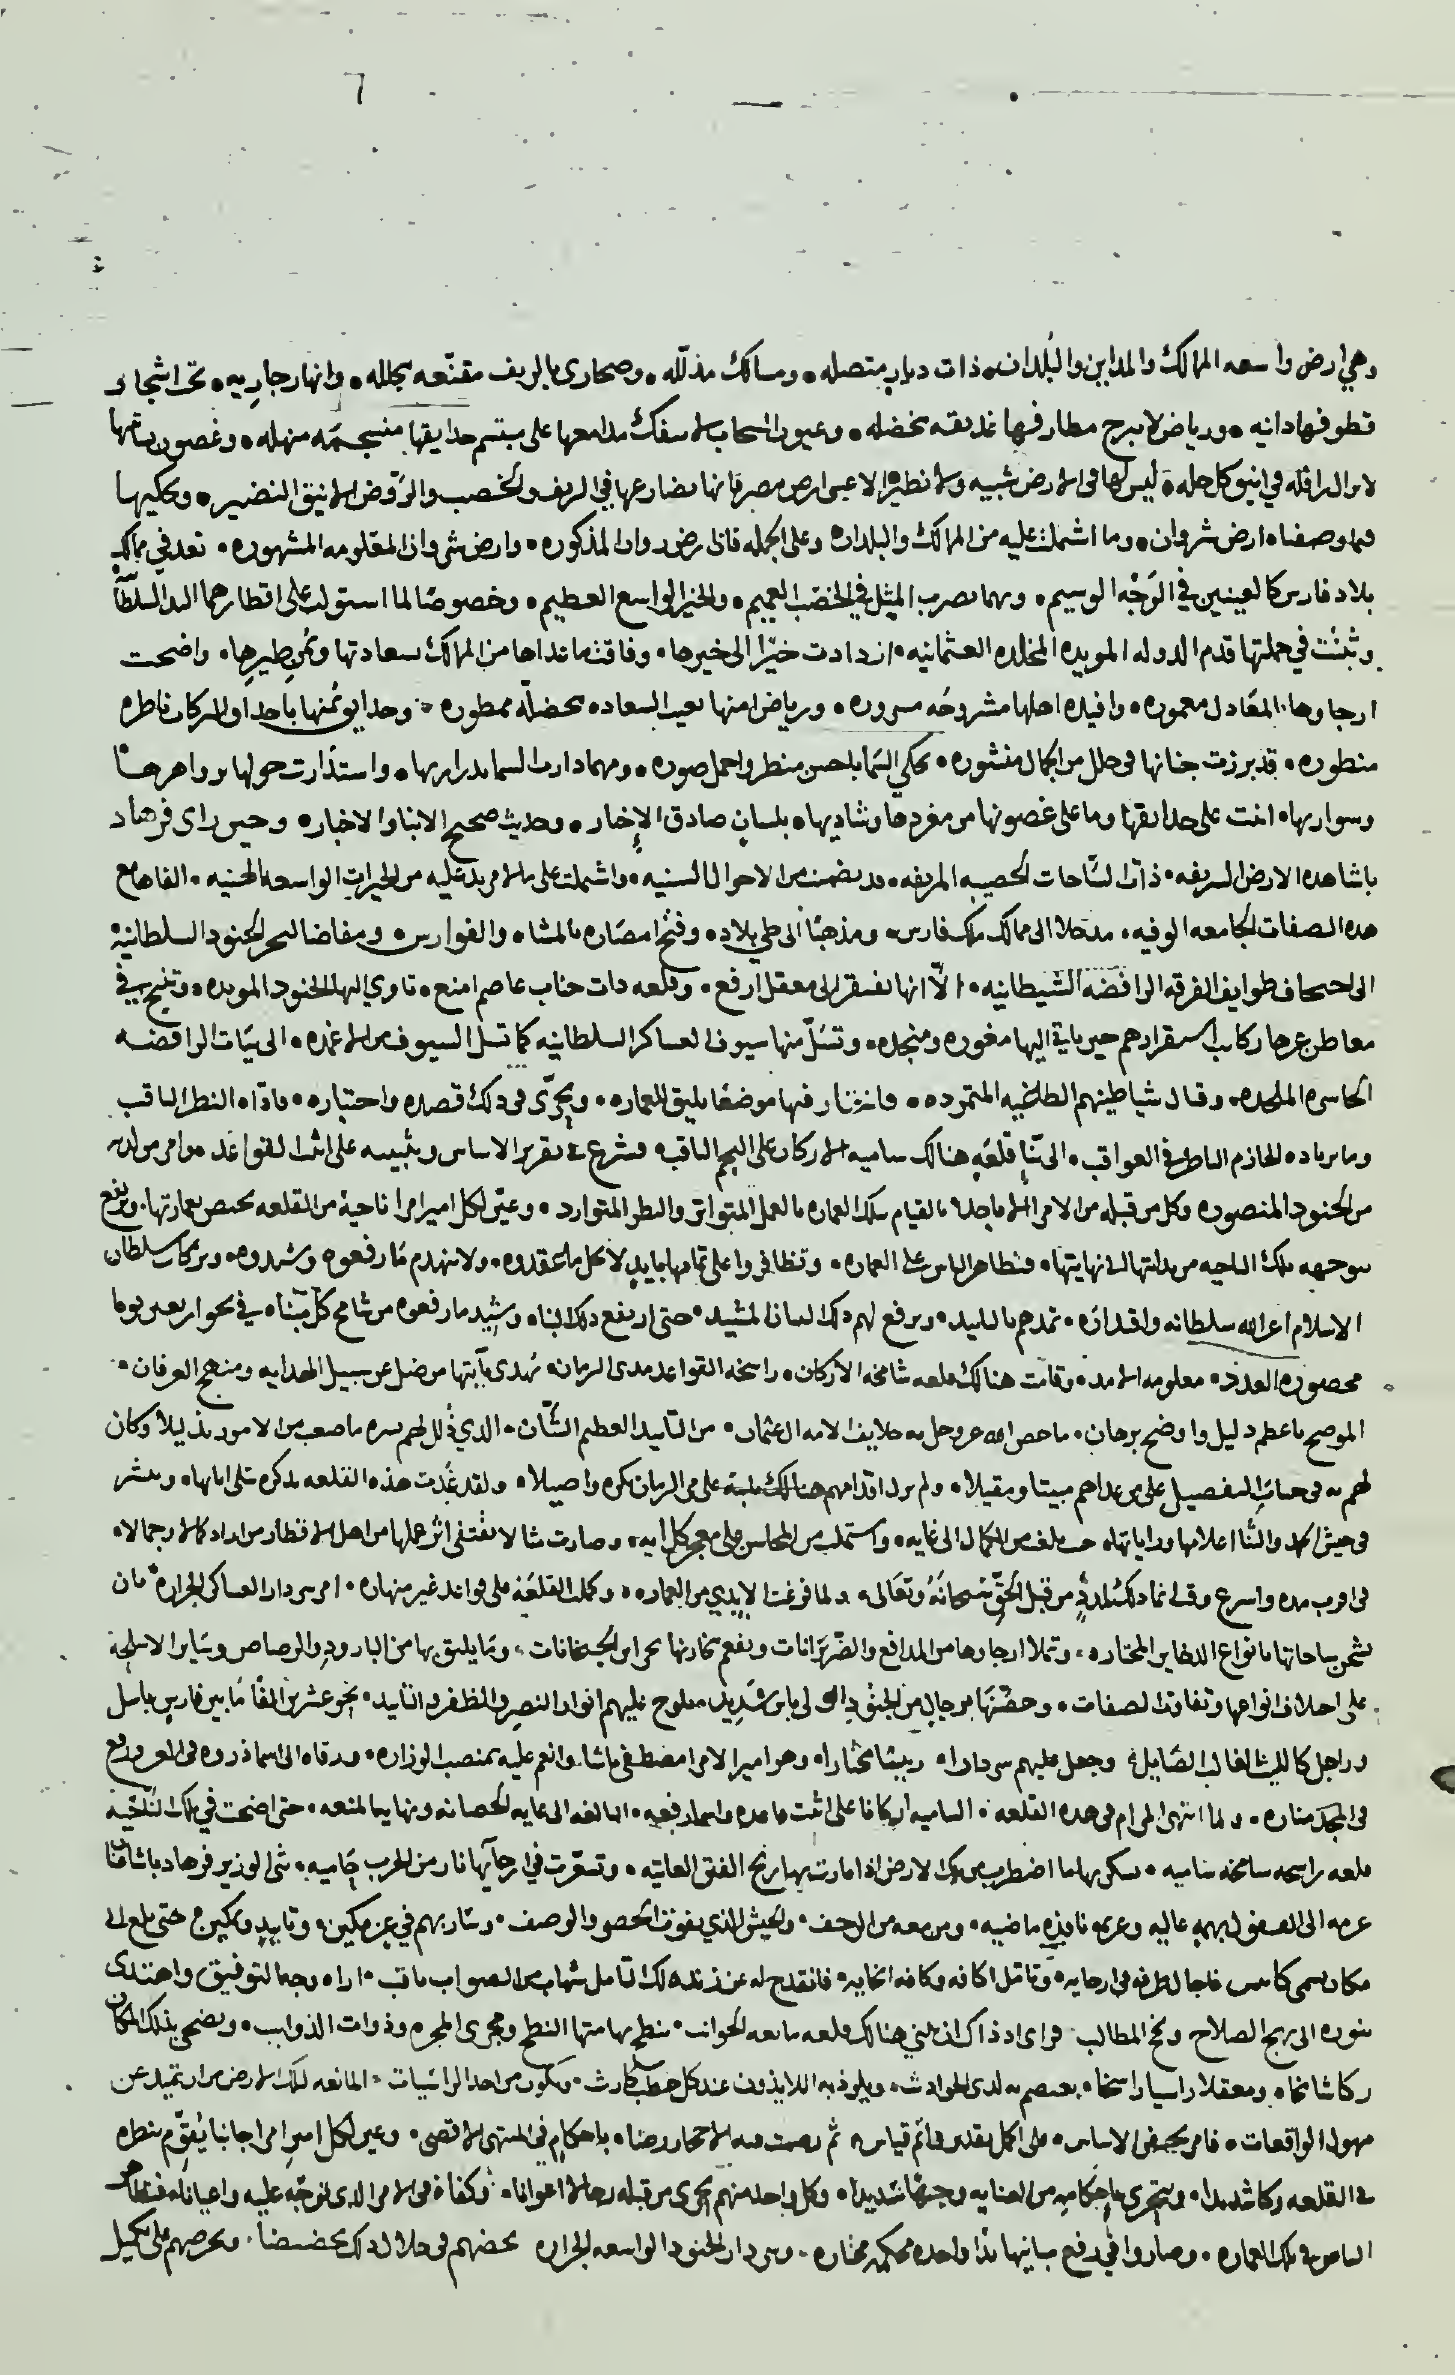 ٦
وهي ارض واسعه الممالك والمداين والبلدان ذات ديار متصله ومسالك مذلله وصحارى بالريف مقنعه مجلله وانهار جاريه تحت اشجار
قطوفها دانيه ورياض لا تبرح مطارفها غديقه مخضله وعيون السحاب لا سفك مدامعها على مبتسم حدايقها منسجمه منهله وغصون
في كل حله ليس لها في الارض شبيه ولا نظير الا عبى ارض مصر فانها تضارعها في الريف والخصب والروض الانيق النضير وتحكيها
فيما وصفناه ارض شروان وما اشتملت عليه من الممالك والبلدان وعلى الجمله فان ارض روان المذكوره وارض شروان المعلومه المشهوره تعد في ممالك
بلاد فارس كالعينين في الوجه الوسيم وبهما يضرب المثل في الخصب العميم والخير الواسع العظيم وخصوصا لما استولت على اقطارهما اليد السلطا
وثبتت في جملتها قدم الدوله المويده المخلده العثمانيه ازدادت خيرا الى خيرها وفاقت ما عداها من الممالك بسعادتها ويمن طيرها واضحت
ارجاوها المعادل معموره وافيده اهلها مشروحه مسروره ورياض امنها بغيث السعاده مخضله ممطوره وحدايق يمنها باحداق البركات ناظره
منظوره قد برزت جنانها في حلل من الجمال منشوره تحكي السما باحسن منظر واجمل صوره ومهما دارت السما بدراريها واستدارت حولها زواهرها
وسواريها انبت على حدايقها وما على غصونها من مغردها وشاديها بلسان صادق الاخبار وحديث صحيح الانبا والاخبار وحين راى فرهاد
باشا هذه الارض الشريفه ذات الساحات الخصيبه المريفه قد تضمنت من الاحوال السنيه واشتملت على ما لا مزيد عليه من الخيرات الواسعه الهنيه الفاها مع
هذه الصفات الجامعه الوفيه مدخلا الى ممالك ملك فارس ومذهبا الى طي بلاده وفتح امصاره بالمشاه والفوارس ومفاضا لبحر الجنود السلطانيه
الى اجحاف طوايف الفرقه الرافضه الشيطانيه الا انها تفتقر الى معقل ارفع وقلعه ذات جناب عاصم امنع تاوي اليها الجنود المويده وتنيخ في
معاطن عزها ركايب استقرارهم حين ياتي اليها مغوره ومنجده وتسل منها سيوف العساكر السلطانيه كما تسل السيوف من الاغمده الى بيات الرافضه
الخاسره الملحده وقتال شياطينهم الطاغيه المتمرده فاختار فيها موضعا يليق للعماره وتحرى في ذلك قصده واختياره فاداه النظر الثاقب
وما يريده الحازم الناظر في العواقب الى بنا قلعه هنالك ساميه الاركان على النجم الثاقب فشرع في تقرير الاساس وتثبيته على اثبت القواعد وامر من لديه
من الجنود المنصوره وكل من قبله من الامرا الاماجد بالقيام بتلك العماره بالعمل المتواتر والنظر المتوارد وعين لكل امير امرا ناحية من القلعه يختص بعمارتها ويرفع
بتوجهه تلك الناحيه من بدايتها الى نهايتها فتظاهر الناس على العماره وتظافروا على تمامها بايد لا تحل ما عقدوه ولا ينهدم ما رفعوه وشيدوه وبركات سلطان
الاسلام اعز الله سلطانه واقتداره تمدهم بالتاييد وترفع لهم ذلك البنيان المشيد حتى ارتفع ذلك البنا وشيد ما رفعوه من شامخ كل مبناه في نحو اربعين يوما
محصوره العدد معلومه الامد وقامت هنالك قلعه شامخه الاركان راسخه القواعد مدى الزمان تهدى بآيتها من ضل عن سبيل الهدايه ومنهج العرفان
الموضح باعظم دليل واوضح برهان ما خص الله عز وجل به خلايف الامه ال عثمان من التاييد العظيم الشان الذي ذلل لهم بسره ما صعب من الامور تذليلا وكان
لهم به في حساب التفصيل على من عداهم مبيتا ومقيلا ولم تزل اقدامهم هنالك ثابتة على مر الزمان بكره واصيلا ولقد غدت هذه القلعه بذكره تتلى اياتها وتنشر
في جيش الحمد والثنا اعلامها وراياتها حيث بلغت من الكمال الى غايه واشتملت من المحاسن على معجز كل ايه وصارت مثالا تقتفى اثر عملها من اهل الاقطار من اراد كمالا وجمالا
في اقرب مده واسرع وقت انما ذلك لمدد من قبل الحق سبحانه وتعالى ولما فرغت الايدي من العماره وكملت القلعه على قواعد غير منهاره امر سردار العساكر الجراره بان
تشحن ساحاتها بانواع الذخاير المختاره وتملا ارجاوها من المدافع والضربزانات وتفعم مخازنها بخزاين الجبخانات وما يليق بها من البارود والرصاص وساير الاسلحة
على اختلاف انواعها وتفاوت الصفات وحصنها برجال من الجنود اولى باس شديد تلوح عليهم انوار النصر والظفر والتاييد نحو عشرين الفا ما بين فارس باسل
وراجل كالليث الغالب الصايل وجعل عليهم سردارا رييسا مختارا وهو امير الامرا مصطفى باشا وانعم عليه بمنصب الوزاره ورقاه الى اسما ذروه في العز ورفع
في المجد مناره ولما انتهى المرام في هذه القلعه الساميه اركانا على اثبت قاعده واسما رفعه البالغه الى غايه الحصانه ونهايه المنعه حتى اضحت في تلك الناحيه
قلعه راسخه شامخه ساميه تسكن بها ما اضطرب من تلك الارض اذا مارت بها رنح الفتن العاتيه وتسعرت في ارجآيها نار من الحرب حاميه ثنى الوزير فرهاد باشا عنان
عزمه الى القفول بهمه عاليه وعزمه نافذه ماضيه ومن معه من الزحف والجيش الذي يفوت الحصر والوصف وسار بهم في عز مكين وتاييد وتمكين حتى بلغ الى
مكان يسمى كاسس فاجال طرفه في ارجايه وتامل اكنافه وكافه انحايه فانقدح له عن زند ذلك التامل شهاب من الصواب ثاقب اراه وجه التوفيق واهتدى
بنوره الى نهج الصلاح ونجح المطالب فراى اذ ذاك ان يبني هنالك قلعه مانعه الجوانب تنطح بهامتها النطح ومجرى المجره وذوات الذوايب ويضحى بذلك المكان
ركنا شامخا ومعقلا راسيا راسخا يعتصم به لدى الحوادث ويلوذ به اللايذون عند كل خطب كارث وتكون من احد الراسيات المانعه لتلك الارض من ان تميد عن
مهول الواقعات فامر بحفر الاساس على اكمل تقدير واتم قياس ثم رصت فيه الاحجار رضا باحكام في المنتهى الاقصى وعين لكل امير امرا جانبا يقوم بنظره
في القلعه ركنا شديدا ويتحرى باحكامه من العنايه وجها سديدا وكل واحد منهم تحرى من قبله رجالا اعوانا وكفاة في الامر الذي توجه عليه واعيانا فتظاهر
الناس في تلك العماره وصاروا في رفع مبانيها يدا واحده محكمه مختاره وسردار الجنود الواسعه الجراره يحضهم في خلال ذلك تحضيضا ويحرضهم على تكميل